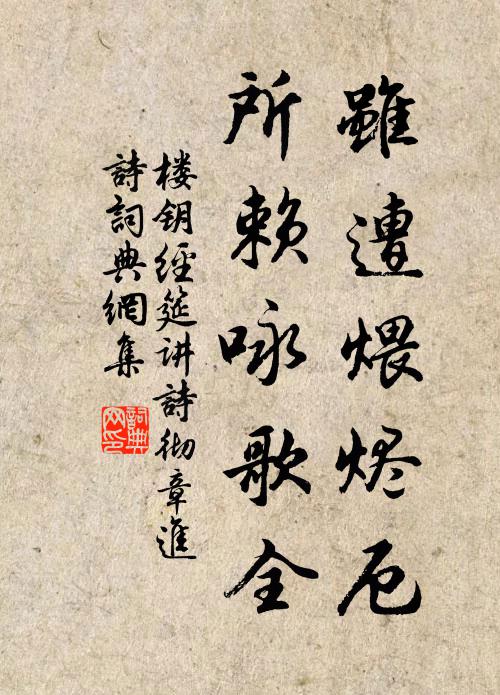 雖遭煨烬厄
所赖咏歌全
楼钥經筵讲詩彻章進
詩詞典網集
詞典网印